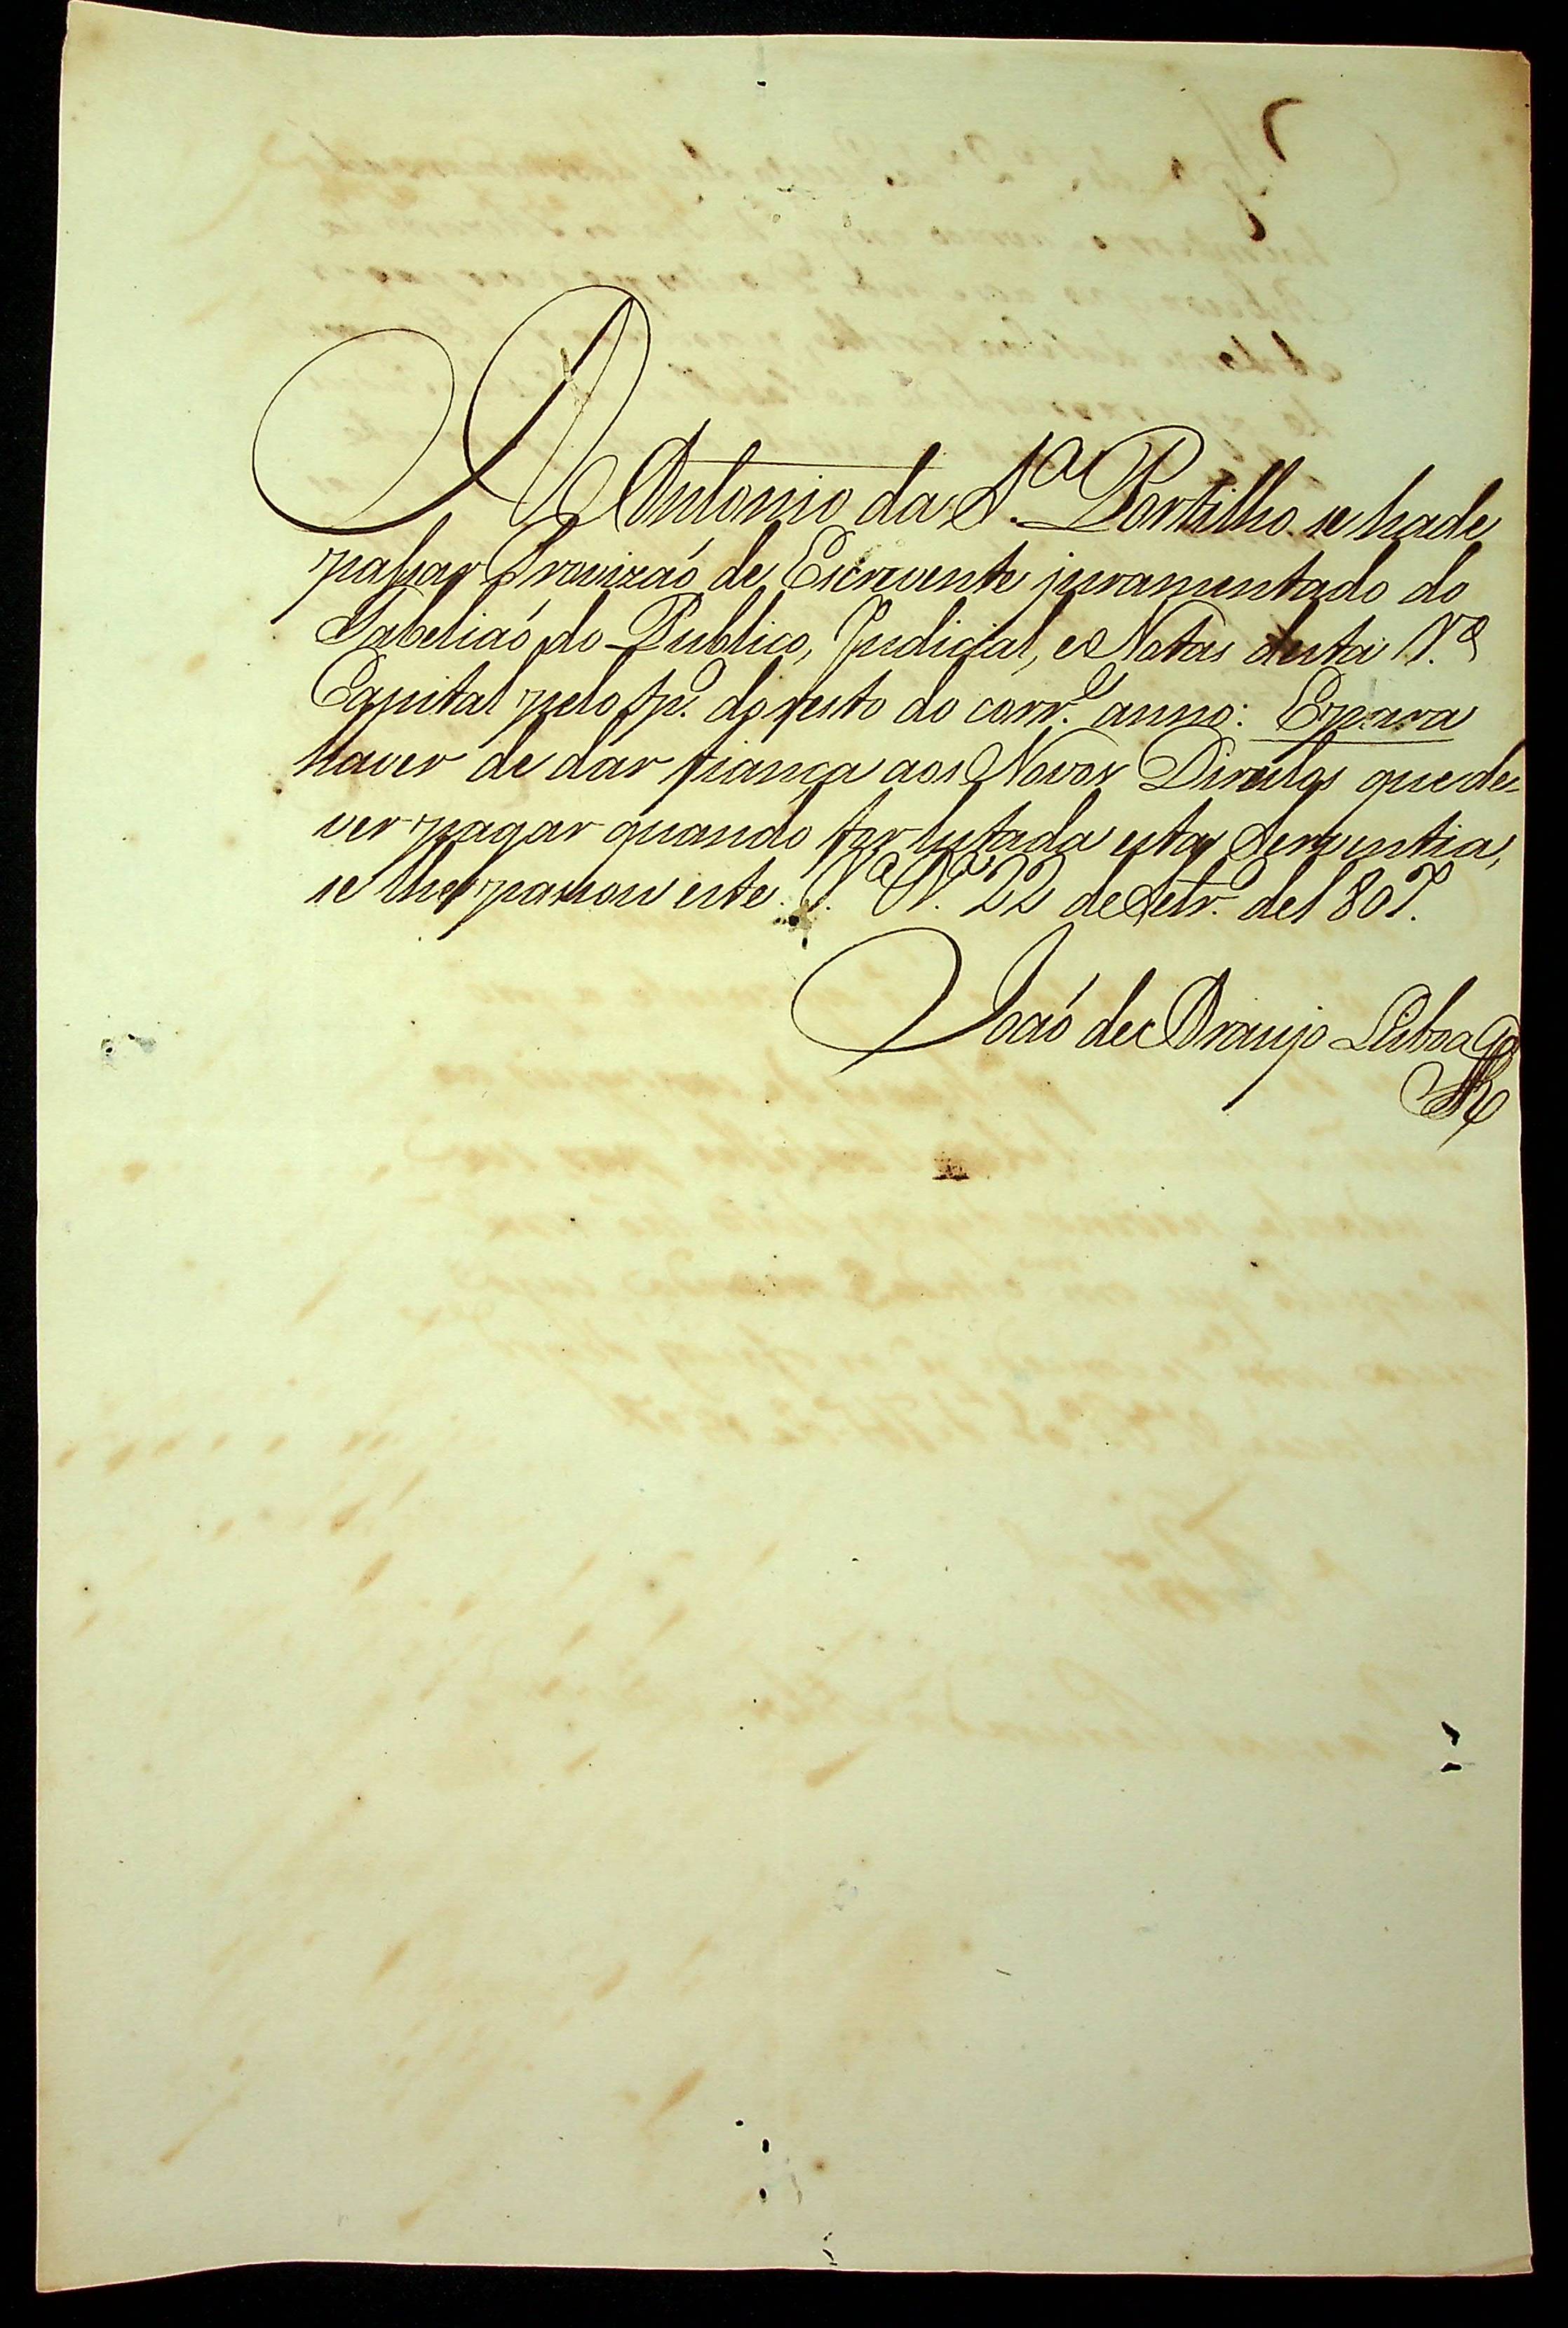 A Antonio da S.ª Portilho se hade
passar Provizaó de Escrevente juramentado do
Tabeliaó do Publico, Judicial, e Notas desta V.ª
Capital pelo tp.º do resto do corr.e anno: E para
haver de dar fiança aos Novos Direitos que de-
ver pagar quando for lutada esta Serventia,
se lhe passou este. V.ª 22 de Setr.º de 1807.
Joaó de Araujo Lisboa